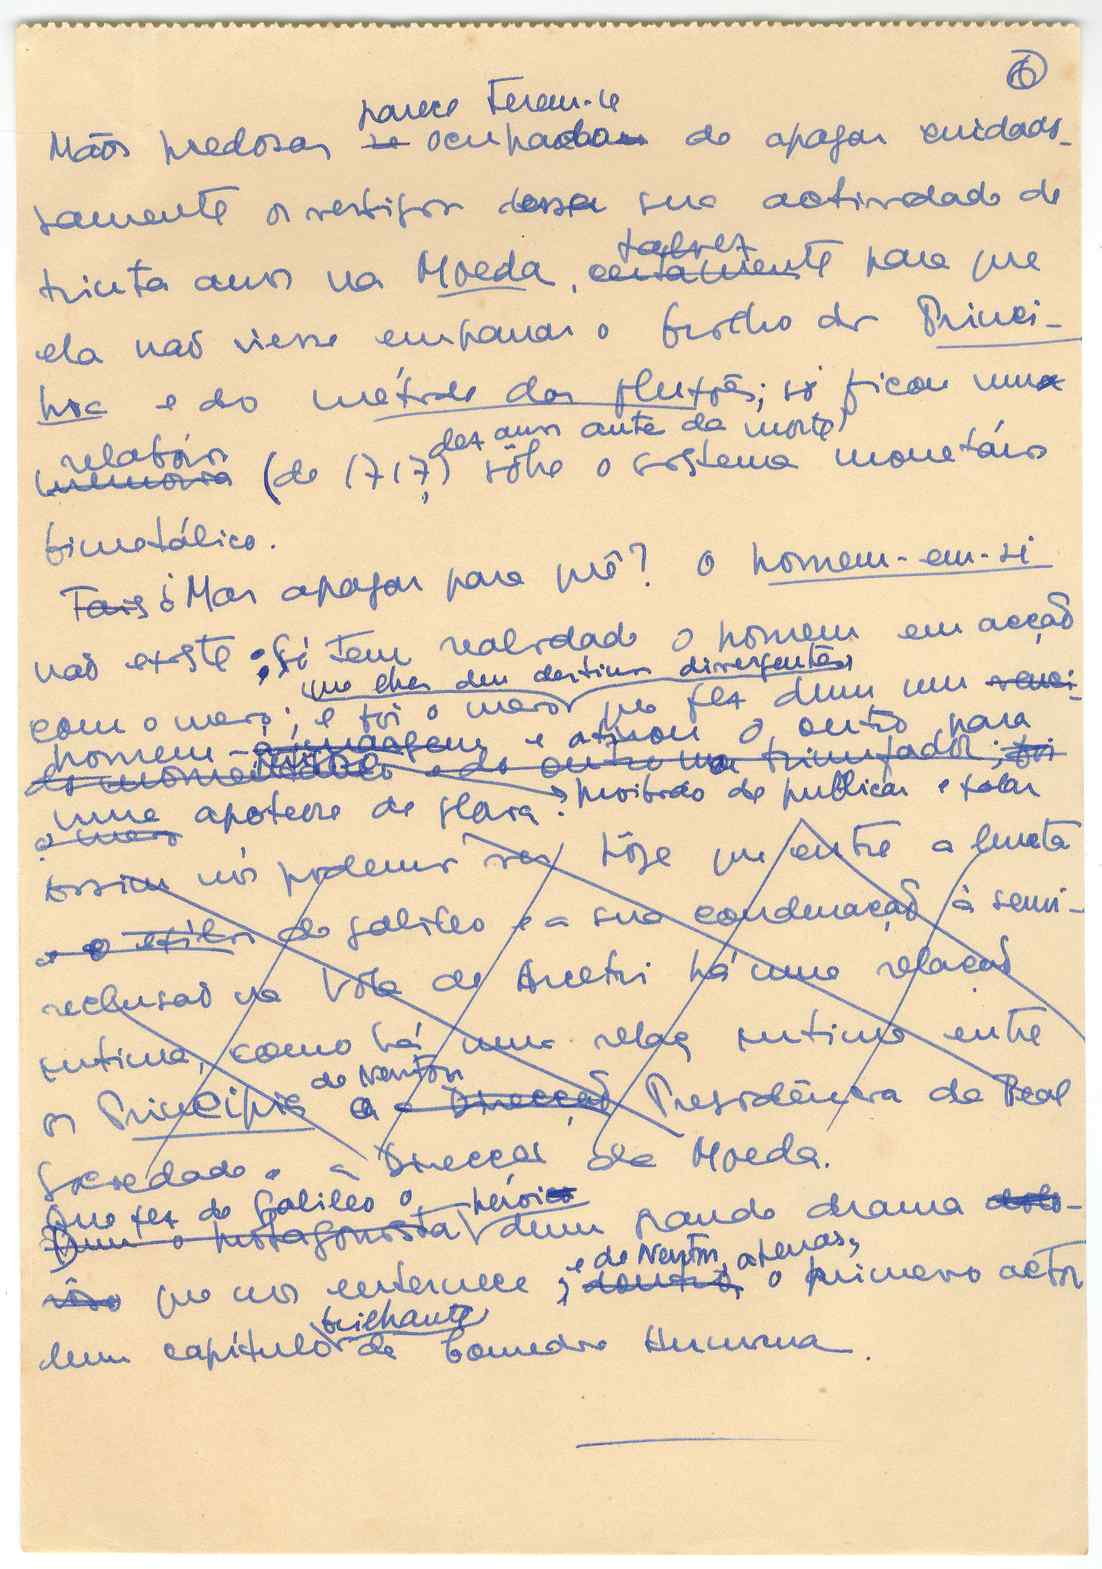 6
parece terem-se
Mãos piedosas se ocupado de apagar cuidado-
samente os vestígios dessa sua actividade de
talvez
trinta anos na Moeda, certamente para que
ela não viesse empanar o brilho dos Princi-
pia e do método das fluxões; só ficou uma
relatório dez anos antes da morte,
memoria (de 1717) sôbre o sistema monetário
bimetálico.
Mas apagar para quê? O homem-em-si
não existe; só tem realidade o homem em acção
que lhes deu destinos divergentes,
com o meio; e foi o meio que fez dum um
homem e atirou o outro para
do outro um triunfador; foi
uma apoteose de glória. proibido de publicar e falar
o meio
Assim nós podemos ver hoje que entre a luneta
e o exílio de Galileo e a sua condenação à semi-
reclusão na Villa de Arcetri há uma relação
íntima, como há uma relaç íntima entre
de Newton
os Principia e a Direcção Presidência da Real
Sociedade e a Direcção da Moeda.
Que fez de Galileo o herói
Dum o protagonista dum grande drama
e de Newton, apenas,
que nos enternece; o primeiro actor
brilhante
dum capítulo da Comedia Humana.